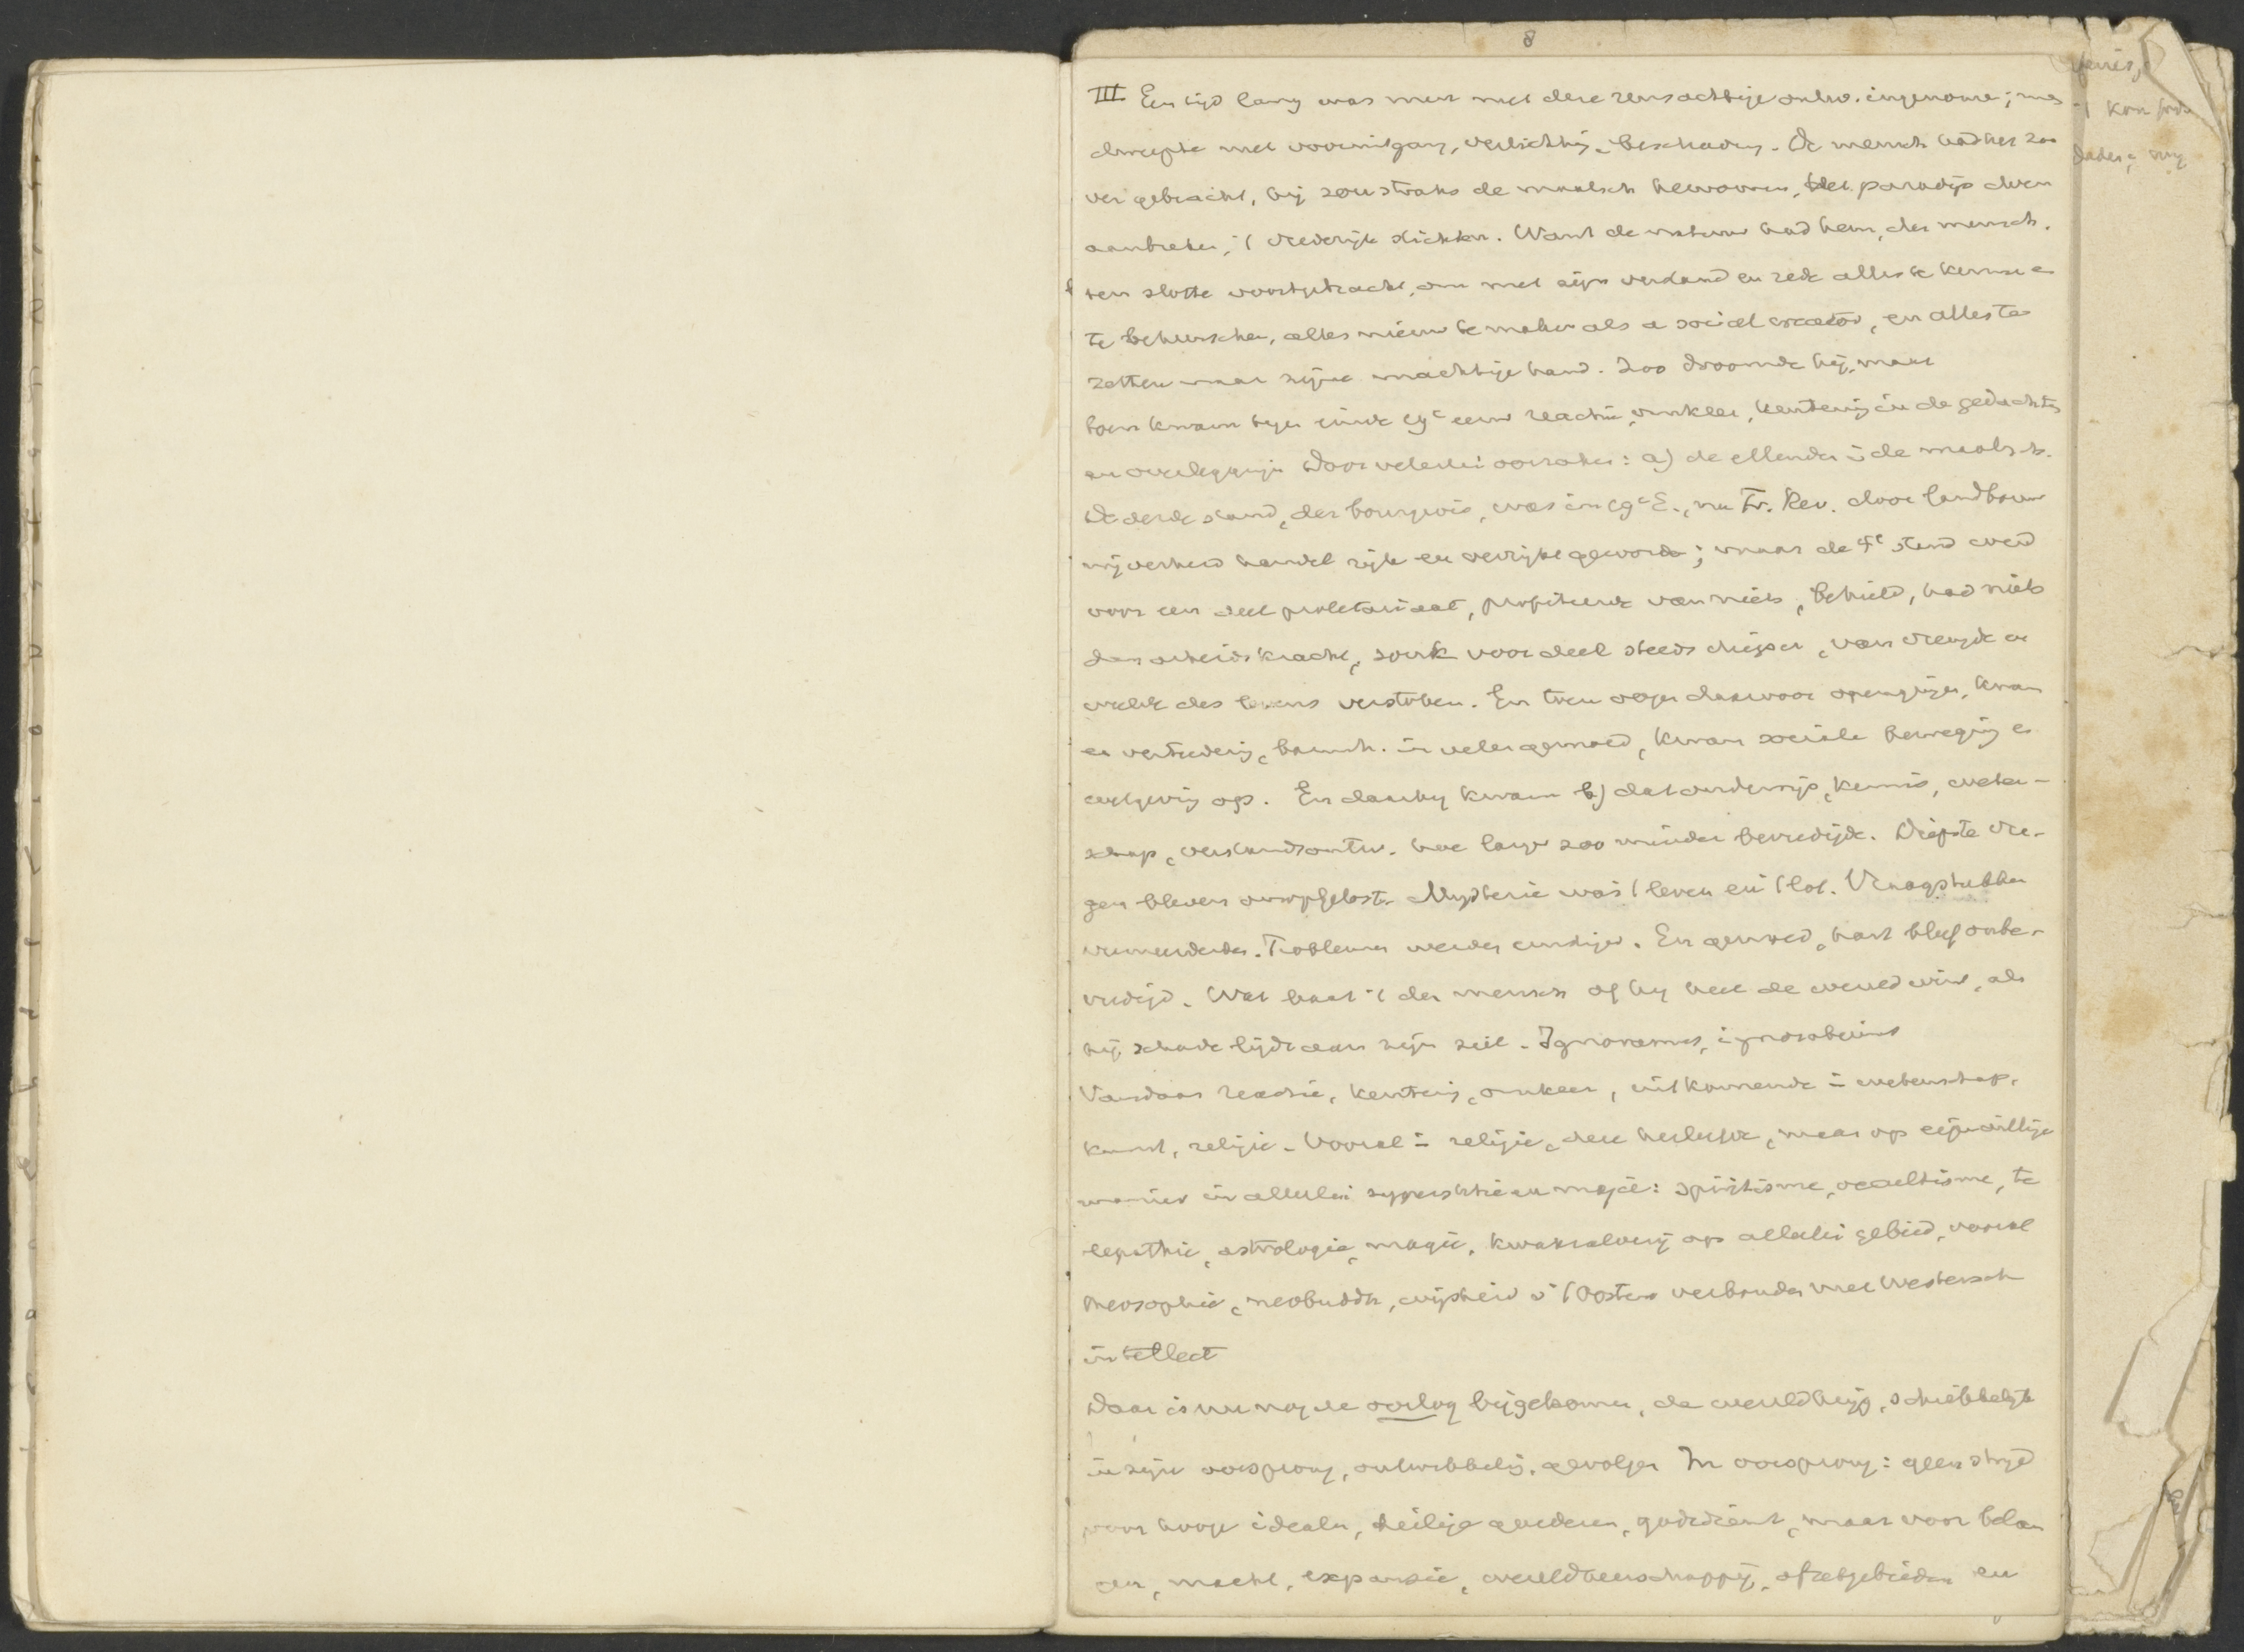 8
III Een tijd lang was men met deze reusachtige ontw. ingenomen; men
dweepte met vooruitgang, verlichting, beschaving. De mensch had het zoo
ver gebracht, hij zou straks de maatsch hervormen, het paradijs doen
aanbreken, 't vrederijk stichten. Want de natuur had hem, den mensch,
ten slotte voortgebracht, om met zijn verstand en rede alles te kennen en
te beheerschen, alles nieuw te maken als a social creator, en alles te
zetten naar zijne machtige hand. Zoo droomde hij, maar
toen kwam tegen einde 19e eeuw reactie, omkeer, kentering in de gedachten
en overleggingen door velerlei oorzaken: a) de ellenden in de maatsch.
De derde stand, der bourgeois, was in 19e E., na Fr. Rev. door landbouw
nijverheid handel rijk en verrijkt geworden; maar de 4e stand werd
voor een deel proletariaat, profiteerde van niets, behield, had niets
dan arbeidskracht, zonk voor deel steeds dieper, van vreugde en
weelde des levens verstoken. En toen oogen daarvoor opengingen, kwam
er verteedering, barmh. in veler gemoed, kwam sociale beweging en
wetgeving op. En daarbij kwam b) dat onderwijs, kennis, weten-
schap, verstandsontw. hoe langer zoo minder bevredigde. Diepste vra-
gen bleven onopgelost. Mysterie was 't leven en 't lot. Vraagstukken
vermeerderden. Problemen werden ernstiger. En gemoed, hart bleef onbe-
vredigd. Wat baat 't den mensch of hij heel de wereld wint, als
hij schade lijdt aan zijn ziel. Ignoramus, ignorabimus
Vandaar reactie, kentering, omkeer, uitkomende in wetenschap,
kunst, religie. Vooral in religie, deze herleefde, maar op eigenwillige
manier in allerlei superstitie en magie: spiritisme, occultisme, te
lepathie, astrologie, magie, kwakzalverij op allerlei gebied, vooral
theosophie, neobuddh, wijsheid v 't Oosten verbonden met Westersch
intellect
Daar is nu nog de oorlog bijgekomen, de wereldkrijg, schrikkelijk
in zijn oorsprong, ontwikkeling, gevolgen In oorsprong: geen strijd
voor hooge idealen, heilige goederen, godsdienst, maar voor belan
gen, macht, expansie, wereldheerschappij, afzetgebieden en